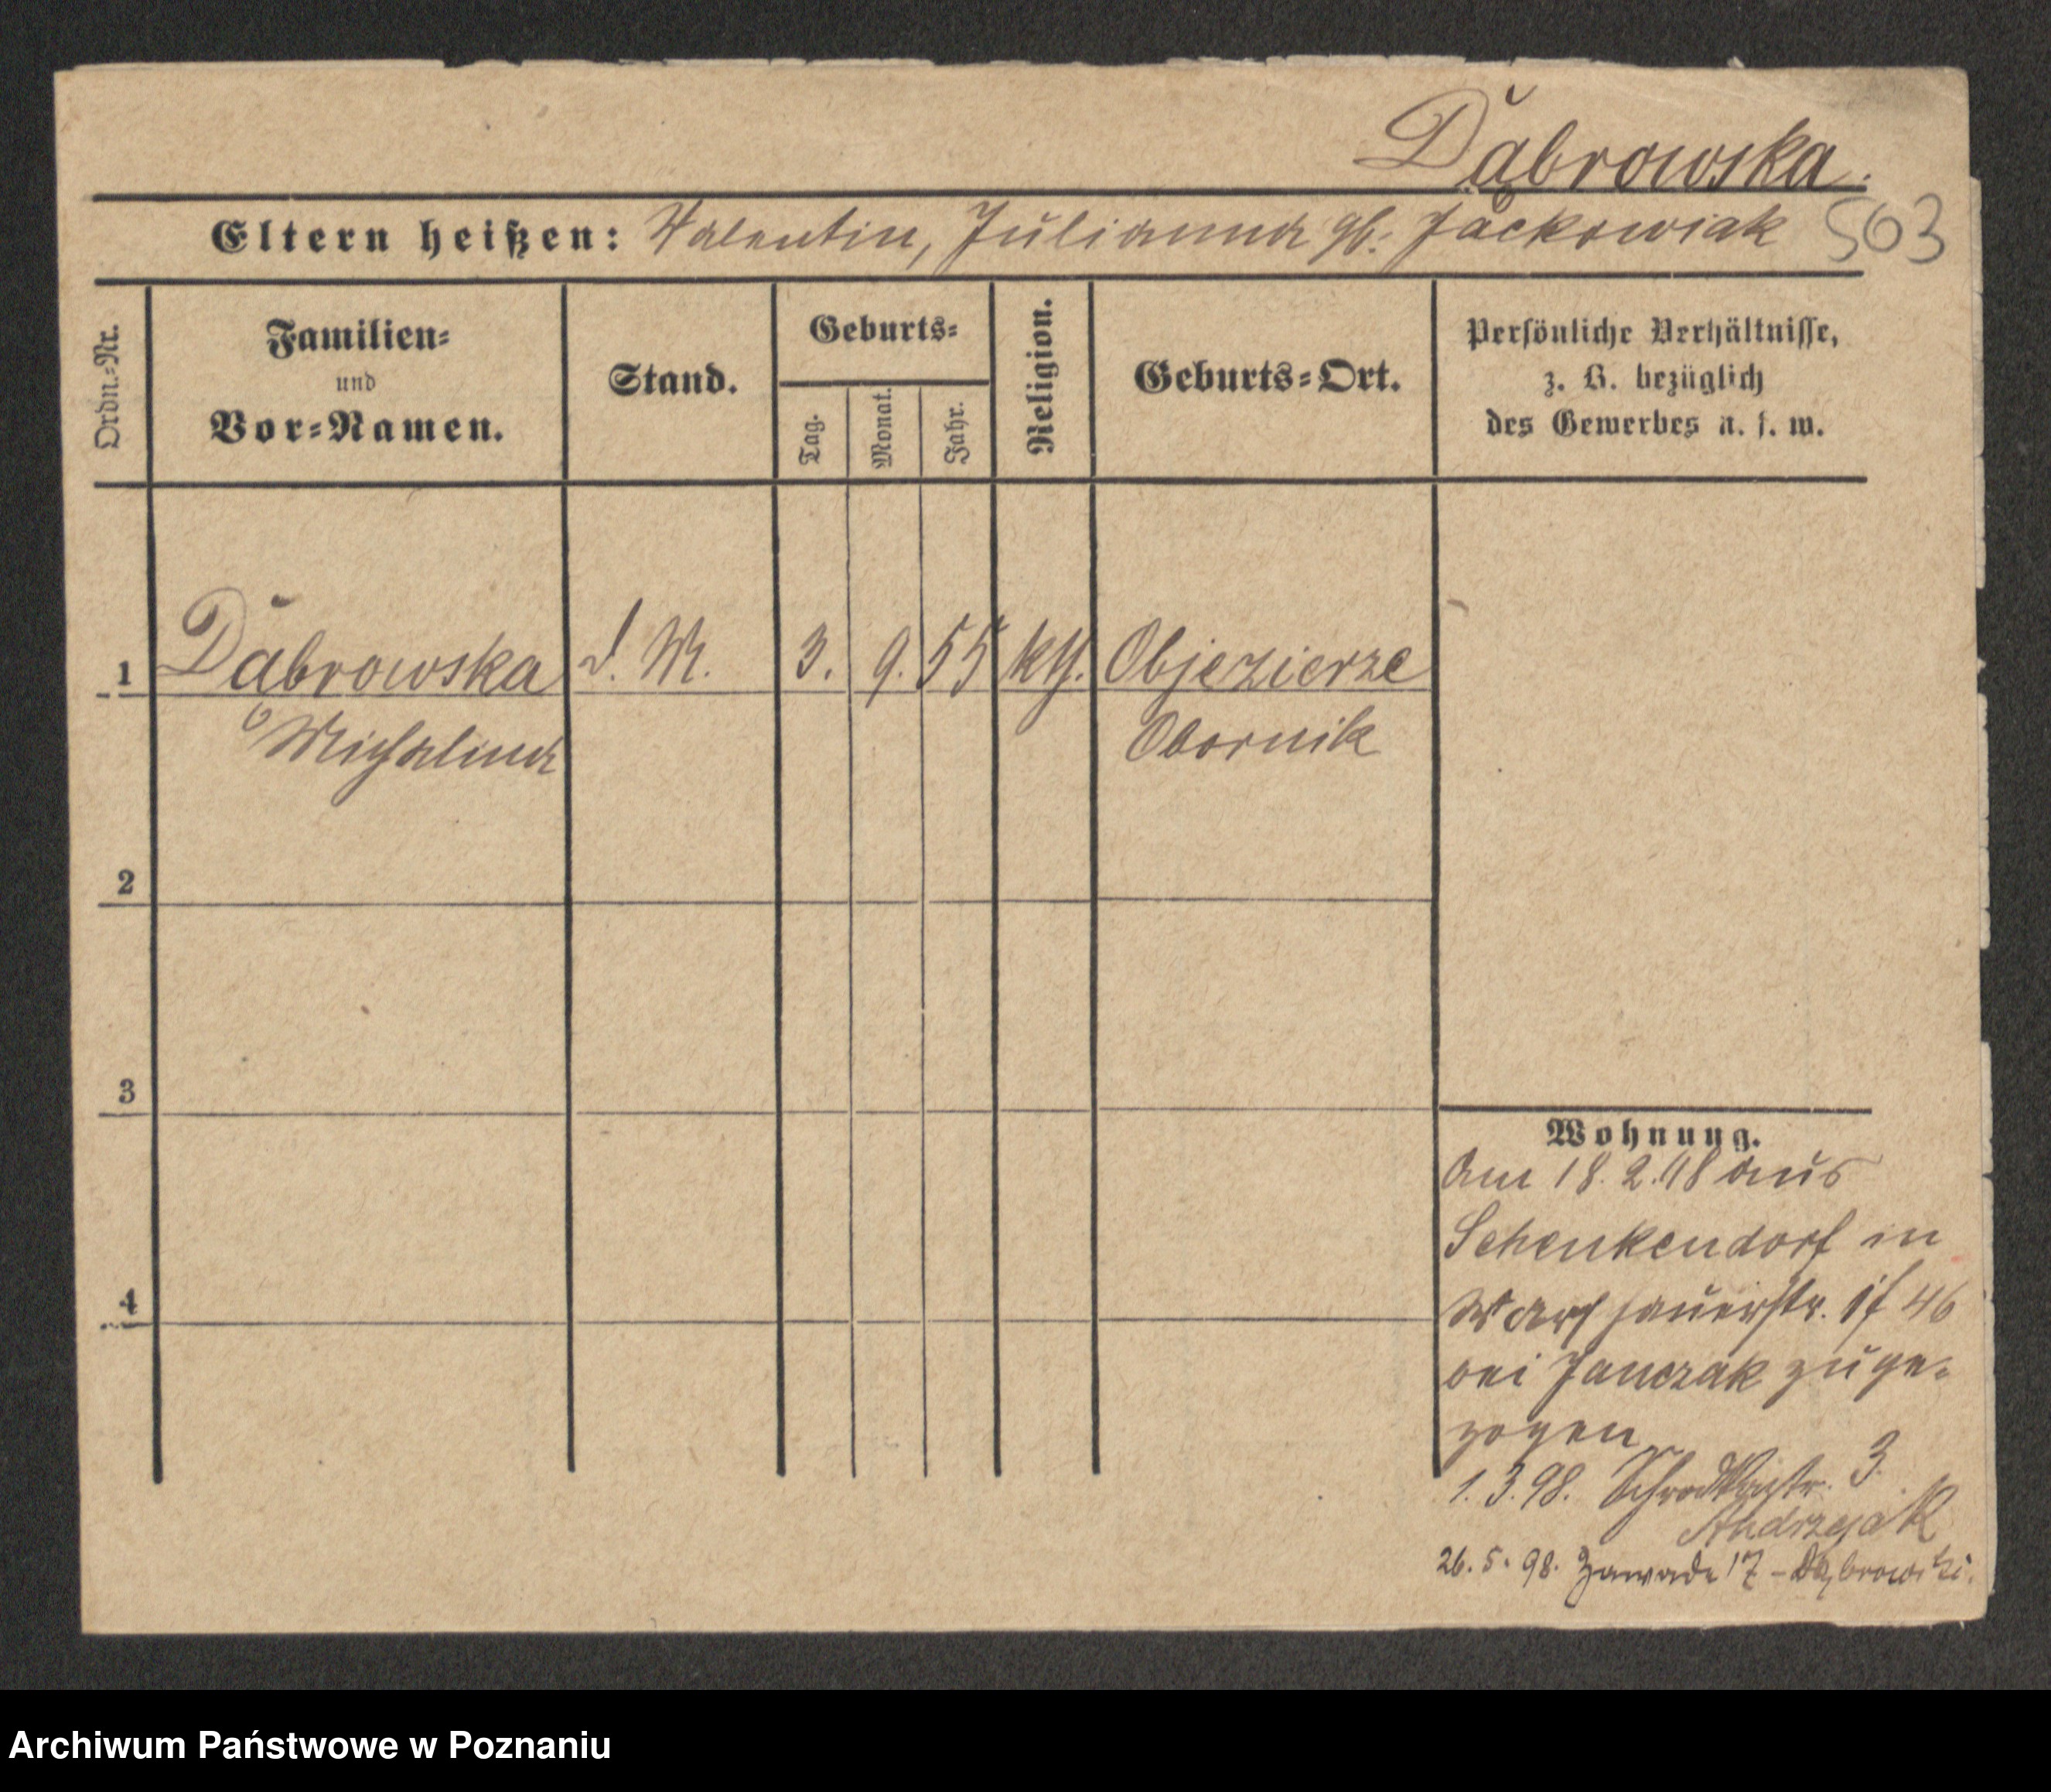 Dąbrowska.
Eltern heißen: Valentin, Julianna gb. Jackowiak 563
Ordn.-Nr.
Familien-
und
Vor-Namen.
Stand.
Geburts-
Tag.
Monat.
Jahr.
Religion.
Geburts-Ort.
Persönliche Verhältnisse,
z. B. bezüglich
des Gewerbes u. s. w.
1 Dąbrowska d. M. 3. 9. 55 kth. Objezierze
Michalina Obornik
2
3
4
Wohnung.
Am 18. 2. 98 aus
Schenkendorf in
Warschauerstr. 46
bei Janczak zuge-
zogen
1. 3. 98. Schrodkastr. 3.
Andrzejak
26. 5. 98. Zawade 17 - Dąbrowski.
Archiwum Państwowe w Poznaniu